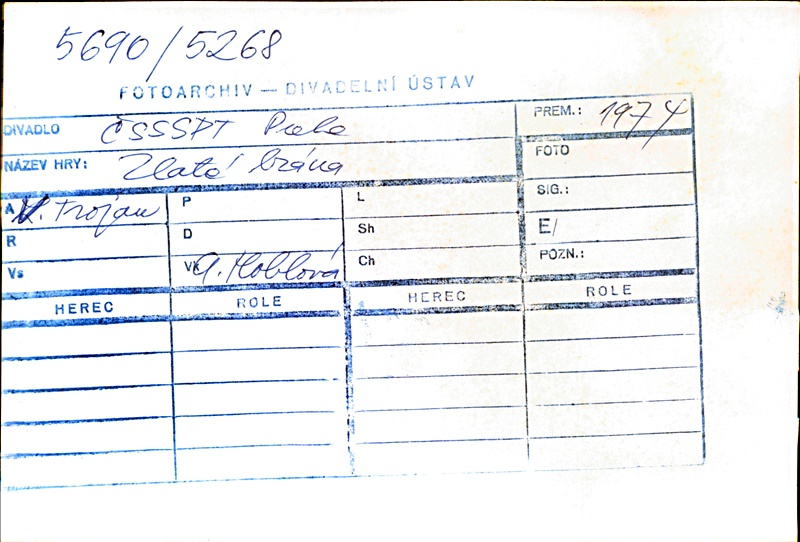 5690/5268
FOTOARCHIV — DIVADELNÍ ÚSTAV
DIVADLO ČSSSPT Praha PREM.: 1974
NÁZEV HRY: Zlatá brána FOTO
SIG.:
A V. Trojan P L
R D Sh E/
Vs Vk A. Hoblová Ch POZN.:
HEREC ROLE HEREC ROLE